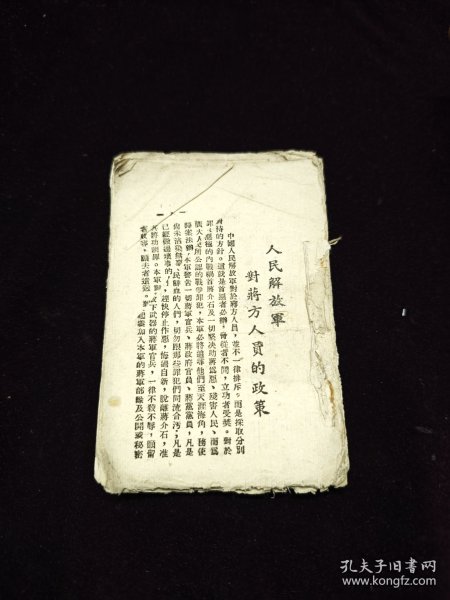 人民解放軍
對蔣方人員的政策
中國人民解放軍對於蔣方人員，並不一律排斥，而是採取分別
對待的方針。這就是首惡者必辦，脅從者不問，立功者受獎。對於
罪大惡極的內戰禍首蔣介石及一切堅決助蔣爲惡、殘害人民、而爲
廣大人民所公認的戰爭罪犯，本軍必將追尋他們至天涯海角，務使
歸案法辦。本軍警告一切蔣軍官兵、蔣政府官員、蔣黨黨員，凡是
尚未沾染無辜人民鮮血的人們，切勿跟那些罪犯們同流合污；凡是
已經做過壞事的人，趕快停止作惡，悔過自新，脫離蔣介石，准
其將功贖罪。本軍對放下武器的蔣軍官兵，一律不殺不辱，願留
者收容，願去者遣送。對起義加入本軍的蔣軍部隊及公開或秘密
一
孔夫子旧书网
www.kongfz.com